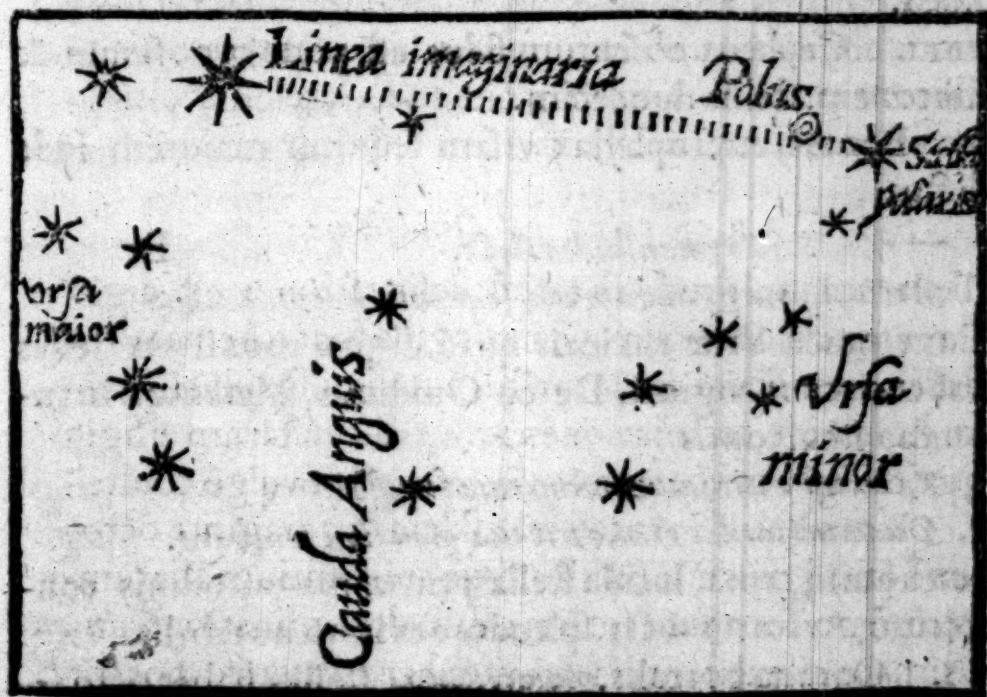 Linea imaginaria
Polus
polaris
Vrsa
maior
Cauda Anguis
Vrsa
minor